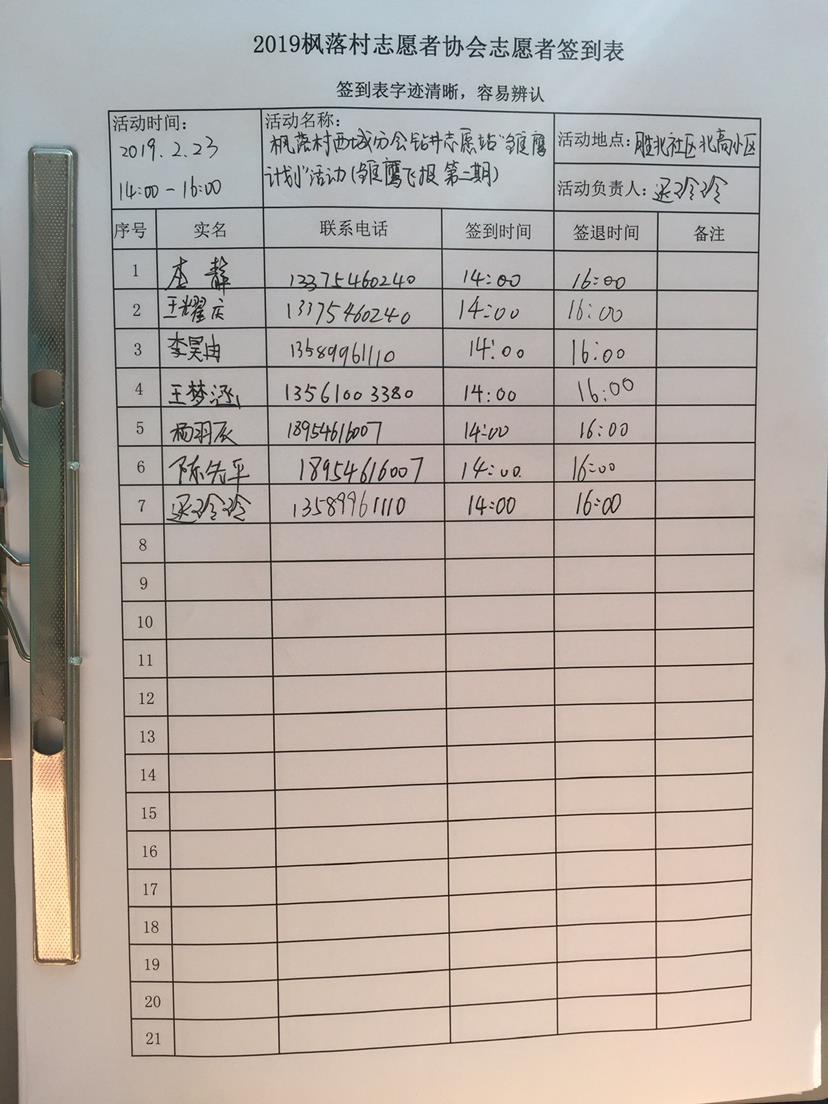 2019枫落村志愿者协会志愿者签到表
签到表字迹清晰，容易辨认
活动时间：
2019.2.23
14:00-16:00
活动名称：
枫落村西城分会钻井志愿站“雏鹰
计划”活动(雏鹰飞报 第二期)
活动地点：胜北社区北高小区
活动负责人：玲玲
序号 实名 联系电话 签到时间 签退时间 备注
1 李静 13375460240 14:00 16:00
2 王耀庆 13375460240 14:00 16:00
3 李昊由 13589961110 14:00 16:00
4 王梦涵 13561003380 14:00 16:00
5 杨羽辰 18954616007 14:00 16:00
6 陈先平 18954616007 14:00 16:00
7 玲玲 13589961110 14:00 16:00
8
9
10
11
12
13
14
15
16
17
18
19
20
21